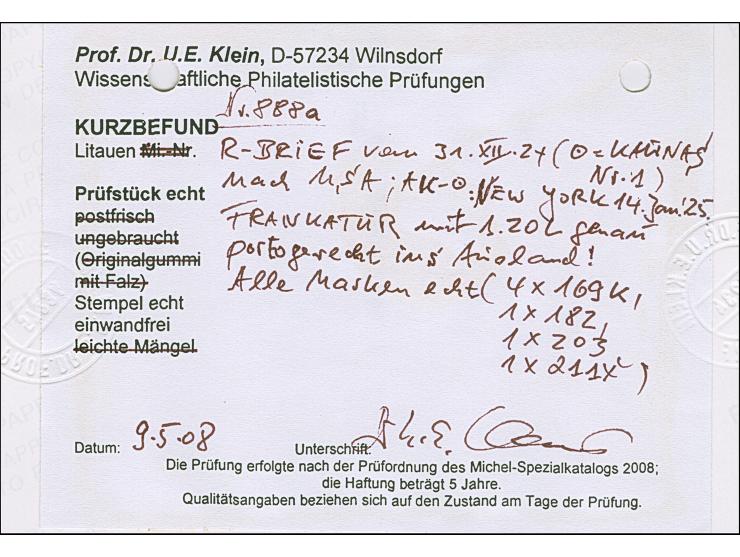 Prof. Dr. U.E. Klein, D-57234 Wilnsdorf
Wissenschaftliche Philatelistische Prüfungen
Nr. 888a
KURZBEFUND
Litauen Mi.-Nr.
R-BRIEF vom 31.XII.24 (⊙=KAUNAS Nr. 1)
nach USA; AK-⊙: NEW YORK 14. Jan. '25.
FRANKATUR mit 1.20L genau
portogerecht ins Ausland!
Alle Marken echt (4 x 169K,
1 x 182,
1 x 203
1 x 211X)
Prüfstück echt
postfrisch
ungebraucht
(Originalgummi
mit Falz)
Stempel echt
einwandfrei
leichte Mängel
Datum: 9.5.08
Unterschrift:
Die Prüfung erfolgte nach der Prüfordnung des Michel-Spezialkatalogs 2008;
die Haftung beträgt 5 Jahre.
Qualitätsangaben beziehen sich auf den Zustand am Tage der Prüfung.